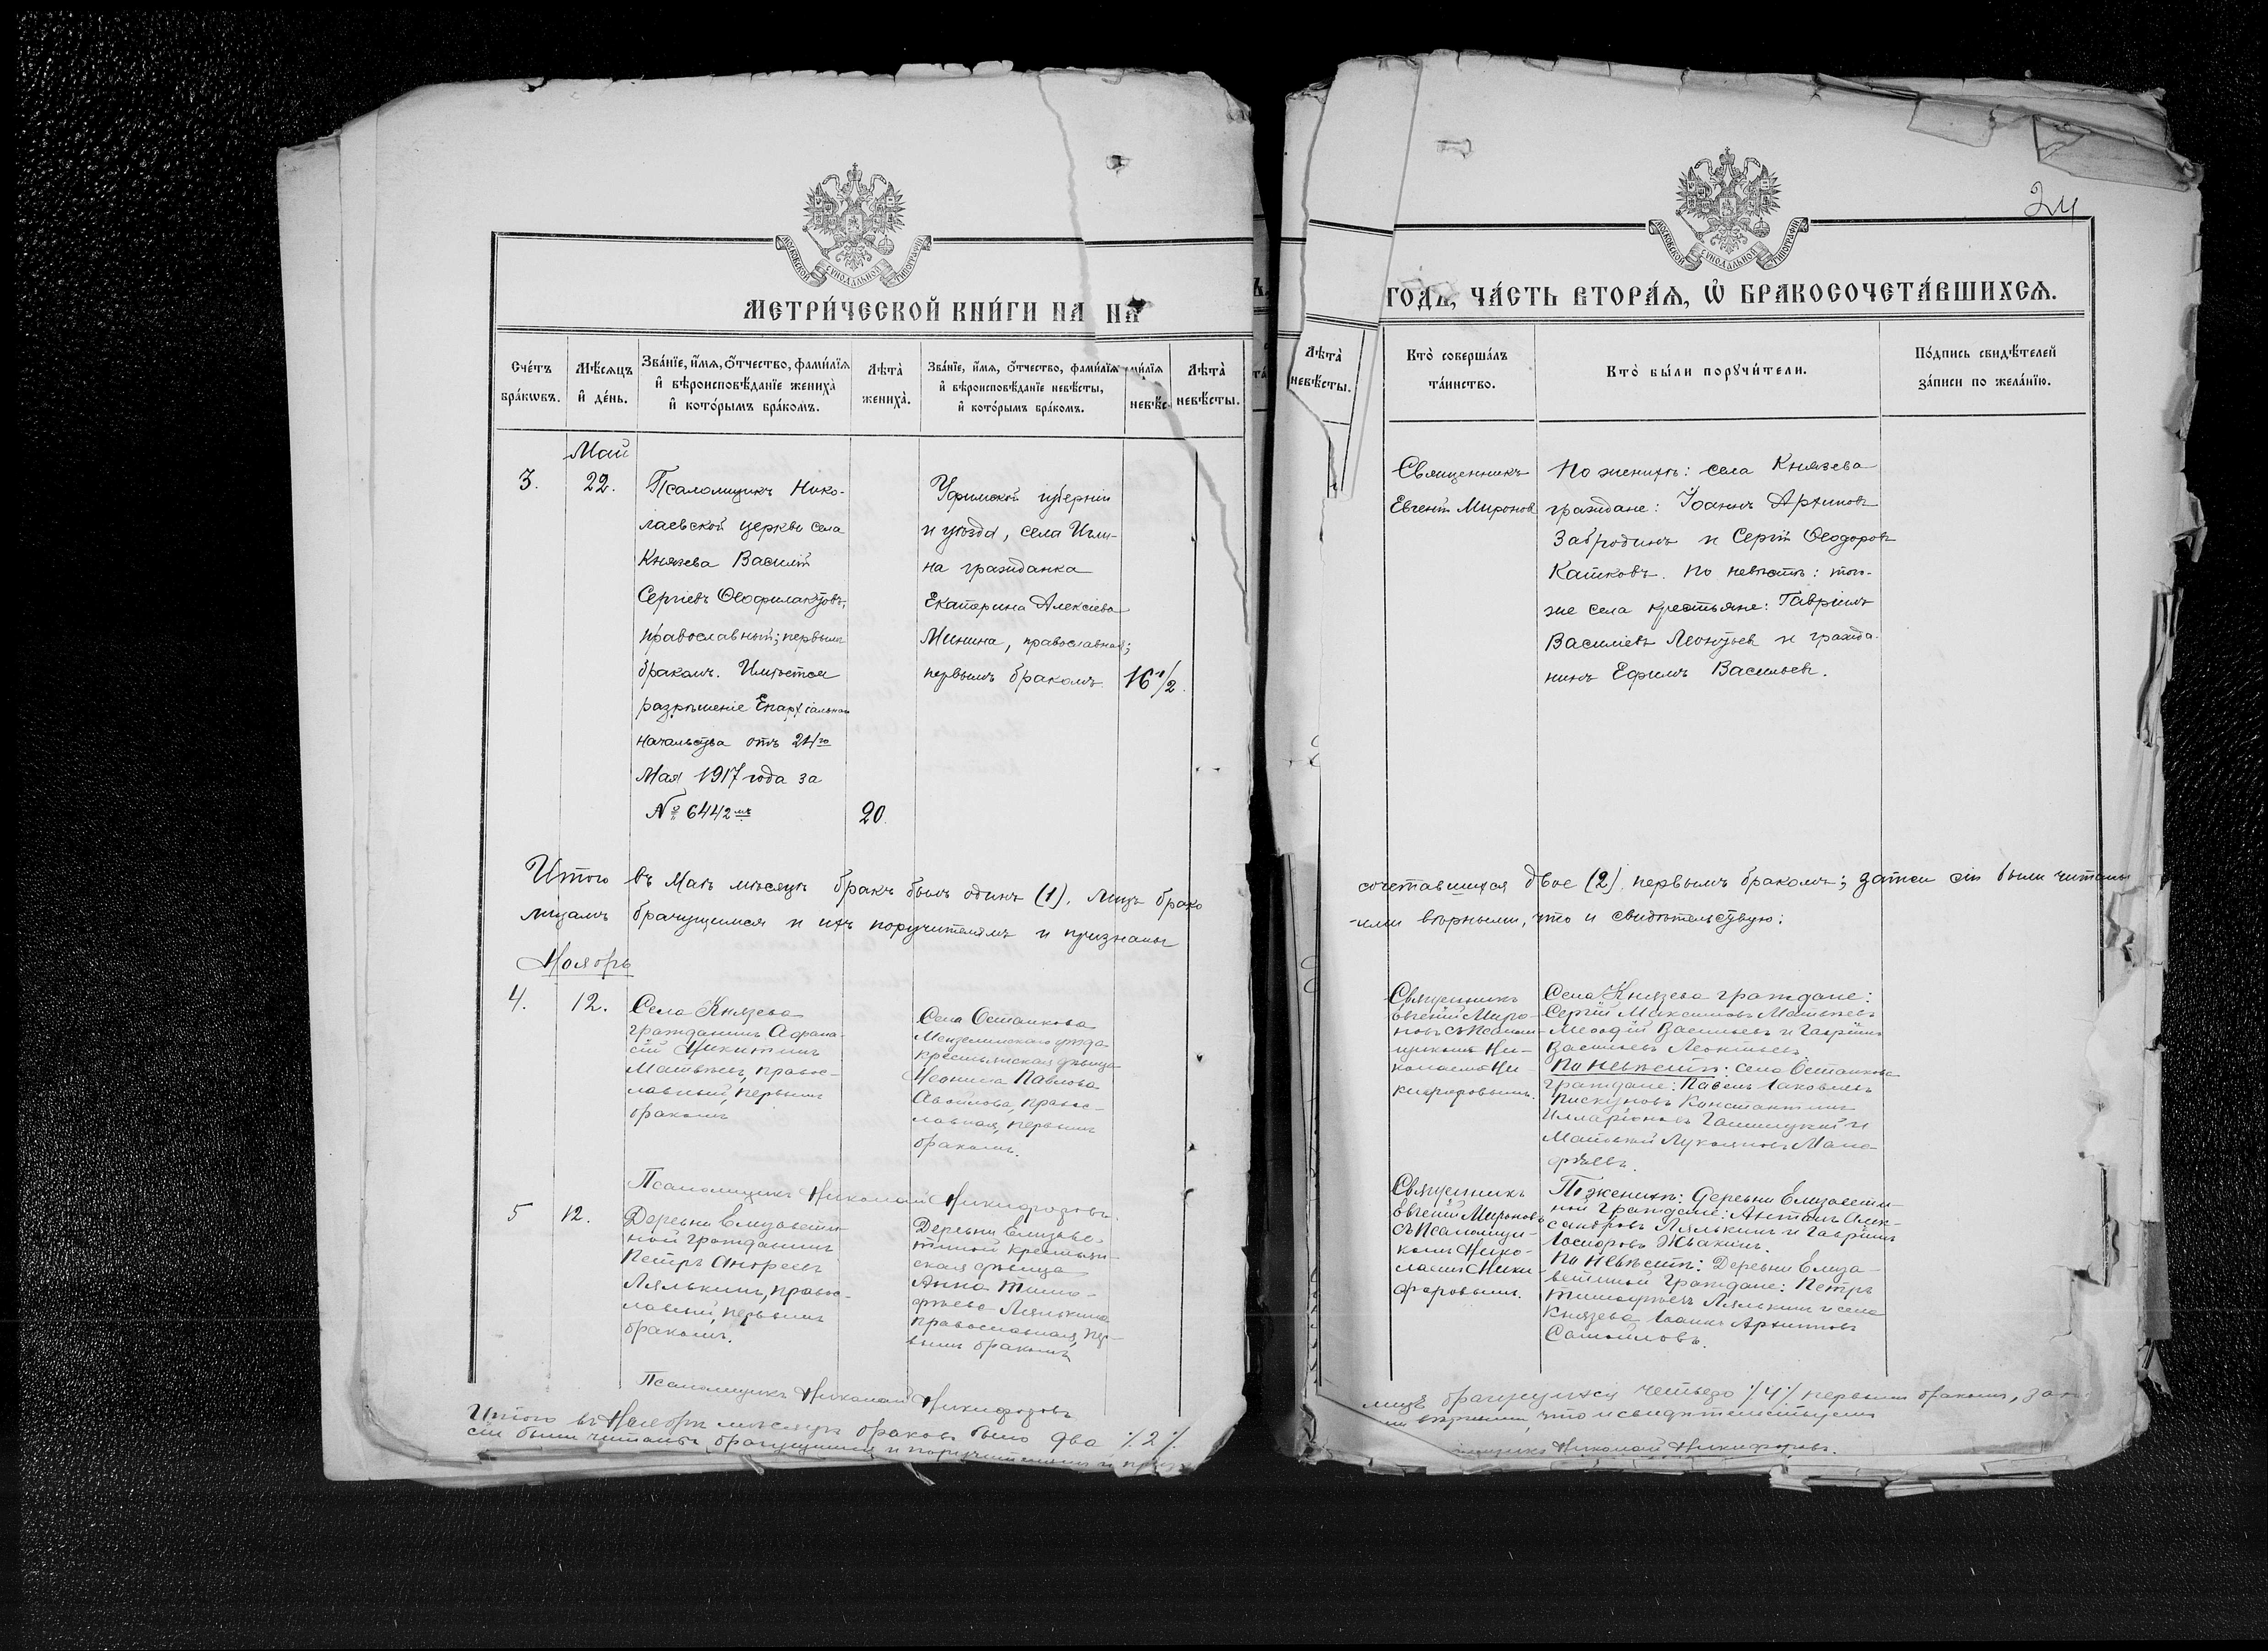 24
МЕТРИ́ЧЕСКОЙ КНИ́ГИ НА НА
ГОДЪ, ЧА́СТЬ ВТОРА́Ѧ, Ѽ БРАКОСОЧЕТА́ВШИХСѦ.
Сче́тъ бра́кѡвъ.
Мѣ́сѧцъ и҆ де́нь.
Зва́нїе, и҆́мѧ, ѻ҆́тчество, фами́лїѧ
и҆ вѣроисповѣ́данїе жениха̀
и҆ кото́рымъ бра́комъ.
Лѣ́та̀ жениха̀.
Зва́нїе, и҆́мѧ, ѻ҆́тчество, фами́лїѧ
и҆ вѣроисповѣ́данїе невѣ́сты,
и҆ кото́рымъ бра́комъ.
Лѣ́та̀ невѣ́сты.
Лѣ́та̀ невѣ́сты.
Кто̀ соверша́лъ
та́инство.
Кто̀ бы́ли порꙋчи́тели.
По́дпись свидѣ́телей
за́писи по жела́нїю.
Май
3.
22.
Псаломщикъ Нико-
лаевской церкви села
Князева Василій
Сергіевъ Ѳеофилактовъ,
православный; первымъ
бракомъ. Имѣется
разрѣшеніе Епархіальнаго
начальства отъ 24го
Мая 1917 года за
№ 6442мъ
20.
Уфимской губерніи
и уѣзда, села Игли-
на гражданка
Екатерина Алексіева
Минина, православная;
первымъ бракомъ.
16 1/2.
Священникъ
Евгеній Мироновъ
По женихѣ: села Князева
граждане: Іоаннъ Архиповъ
Забродинъ и Сергій Ѳеодоровъ
Катковъ. По невѣстѣ: того-
же села крестьяне: Гавріилъ
Василіевъ Леонтьев и гражда-
нинъ Ефимъ Васильевъ.
Итого въ Маѣ мѣсяцѣ бракъ былъ одинъ (1). Лицъ брако
сочетавшихся двое (2) первымъ бракомъ; записи сіи были читаны
лицамъ брачущимся и ихъ поручителямъ и признаны
ими вѣрными, что и свидѣтельствую:
Ноябрь
4.
12.
Села Князева
гражданинъ Афана-
сій Никитинъ
Матвѣевъ, правос-
лавный, первымъ
бракомъ
Села Останкова
Мензелинскаго уѣзда
крестьянская дѣвица
Павлова
правос-
лавная, первымъ
бракомъ.
Священникъ
Евгеній Миро-
новъ съ Псалом-
щикомъ Ни-
колаемъ Ни-
кифоровымъ.
Села Князева граждане:
Сергій Максимовъ Матвѣевъ
Меѳодій Васильевъ и Гавріилъ
Васильевъ Леонтьевъ
По невѣстѣ: села Останкова
граждане: Павелъ Іаковлевъ
Пискуновъ Константинъ
Илларіоновъ и
Лукояновъ
Псаломщикъ Николай Никифоровъ.
5
12.
Деревни Елизавети-
ной гражданинъ
Петръ Андреевъ
Лялькинъ, правос-
лавный, первымъ
бракомъ.
Деревни Елизаве-
тиной крестьян-
ская дѣвица
Анна Тимо-
фѣева Лялькина
православная, пер-
вымъ бракомъ
Священникъ
Евгеній Мироновъ
съ Псаломщи-
комъ Нико-
лаемъ Ники-
форовымъ.
По женихѣ: Деревни Елизавети-
ной граждане: Антонъ Алек-
сандровъ Лялькинъ и Гавріилъ
По невѣстѣ: Деревни Елиза-
ветиной граждане: Петръ
Тимофѣевъ Лялькинъ и села
Князева Іоаннъ Архиповъ
Самойловъ.
Псаломщикъ Николай Никифоровъ
Итого въ Ноябрѣ мѣсяцѣ браковъ было два /2/.
лицъ брачущихся четверо /4/ первымъ бракомъ,
сіи были читаны брачущимся и поручителямъ и
вѣрными, что и свидѣтельствуемъ
Николай Никифоровъ.